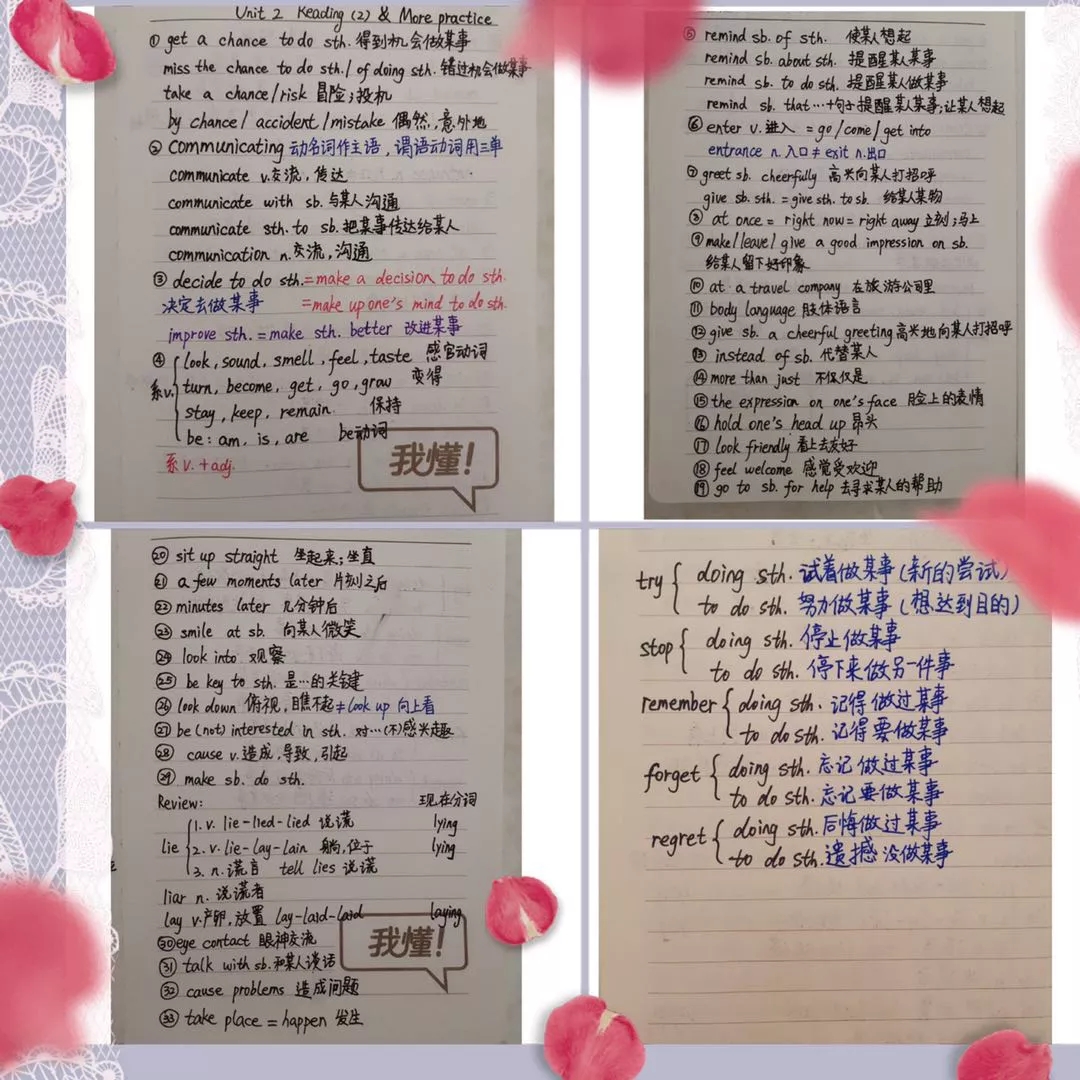 Unit 2 Reading (2) & More practice
① get a chance to do sth. 得到机会做某事
miss the chance to do sth./ of doing sth. 错过机会做某事
take a chance/risk 冒险;投机
by chance/ accident/mistake 偶然,意外地
② communicating 动名词作主语,谓语动词用三单
communicate v.交流,传达
communicate with sb. 与某人沟通
communicate sth. to sb. 把某事传达给某人
communication n.交流,沟通
③ decide to do sth.=make a decision to do sth.
决定去做某事 =make up one's mind to do sth.
improve sth. = make sth. better 改进某事
④ look, sound, smell, feel, taste 感官动词
系v. turn, become, get, go, grow 变得
stay, keep, remain. 保持
be: am, is, are be动词
系v.+adj.
我懂!
⑤ remind sb. of sth. 使某人想起
remind sb. about sth. 提醒某人某事
remind sb. to do sth. 提醒某人做某事
remind sb. that…+句子 提醒某人某事;让某人想起
⑥ enter v.进入 = go/come/get into
entrance n.入口≠exit n.出口
⑦ greet sb. cheerfully 高兴向某人打招呼
give sb. sth. = give sth. to sb. 给某人某物
⑧ at once = right now = right away 立刻;马上
⑨ make/leave/ give a good impression on sb.
给某人留下好印象
⑩ at a travel company 在旅游公司里
⑪ body language 肢体语言
⑫ give sb. a cheerful greeting 高兴地向某人打招呼
⑬ instead of sb. 代替某人
⑭ more than just 不仅仅是
⑮ the expression on one's face 脸上的表情
⑯ hold one's head up 昂头
⑰ look friendly 看上去友好
⑱ feel welcome 感觉受欢迎
⑲ go to sb. for help 去寻求某人的帮助
⑳ sit up straight 坐起来;坐直
㉑ a few moments later 片刻之后
㉒ minutes later 几分钟后
㉓ smile at sb. 向某人微笑
㉔ look into 观察
㉕ be key to sth. 是…的关键
㉖ look down 俯视,瞧不起≠look up 向上看
㉗ be (not) interested in sth. 对…(不)感兴趣
㉘ cause v.造成,导致,引起
㉙ make sb. do sth.
Review: 现在分词
1. v. lie-lied-lied 说谎 lying
lie 2. v. lie-lay-lain 躺,位于 lying
3. n.谎言 tell lies 说谎
liar n.说谎者
lay v.产卵,放置 lay-laid-laid laying
㉚ eye contact 眼神交流
㉛ talk with sb.和某人谈话
㉜ cause problems 造成问题
㉝ take place = happen 发生
我懂!
try doing sth. 试着做某事(新的尝试)
to do sth. 努力做某事(想达到目的)
stop doing sth. 停止做某事
to do sth. 停下来做另一件事
remember doing sth. 记得做过某事
to do sth. 记得要做某事
forget doing sth. 忘记做过某事
to do sth. 忘记要做某事
regret doing sth. 后悔做过某事
to do sth. 遗憾没做某事